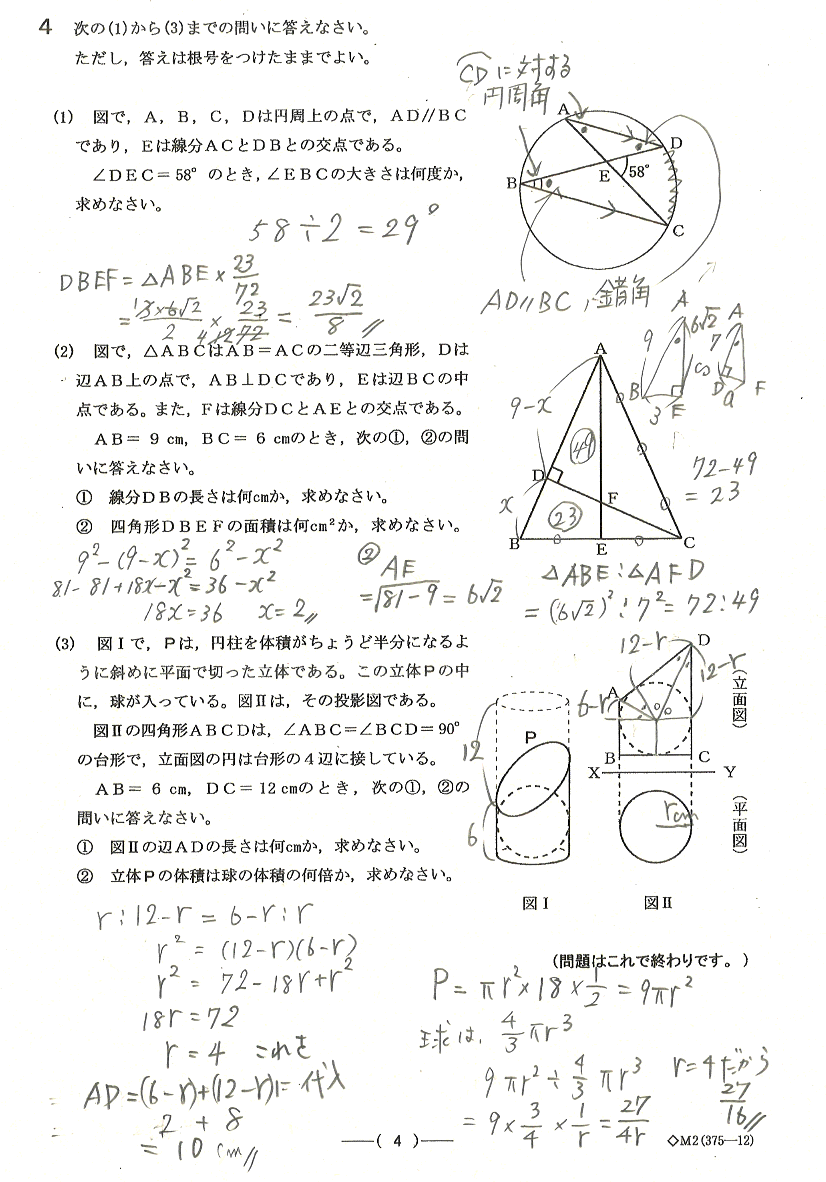 4 次の(1)から(3)までの問いに答えなさい。
ただし，答えは根号をつけたままでよい。
(1) 図で，A，B，C，Dは円周上の点で，AD//BC
であり，Eは線分ACとDBとの交点である。
∠DEC＝58°のとき，∠EBCの大きさは何度か，
求めなさい。
58÷2＝29°
CDに対する
円周角
A
D
E
58°
B
C
AD//BC，錯角
DBEF＝△ABE×23/72
＝3×6√2/2×23/72＝23√2/8
(2) 図で，△ABCはAB＝ACの二等辺三角形，Dは
辺AB上の点で，AB⊥DCであり，Eは辺BCの中
点である。また，Fは線分DCとAEとの交点である。
AB＝9cm，BC＝6cmのとき，次の①，②の問
いに答えなさい。
① 線分DBの長さは何cmか，求めなさい。
② 四角形DBEFの面積は何cm²か，求めなさい。
9²－(9－x)²＝6²－x²
81－81＋18x－x²＝36－x²
18x＝36 x＝2
② AE
＝√81－9＝6√2
A
9－x
49
D
F
x
23
B
E
C
A
9
6√2
B
3
E
A
7
D
a
F
72－49
＝23
△ABE：△AFD
＝(6√2)²：7²＝72：49
(3) 図Ⅰで，Pは，円柱を体積がちょうど半分になるよ
うに斜めに平面で切った立体である。この立体Pの中
に，球が入っている。図Ⅱは，その投影図である。
図Ⅱの四角形ABCDは，∠ABC＝∠BCD＝90°
の台形で，立面図の円は台形の4辺に接している。
AB＝6cm，DC＝12cmのとき，次の①，②の
問いに答えなさい。
① 図Ⅱの辺ADの長さは何cmか，求めなさい。
② 立体Pの体積は球の体積の何倍か，求めなさい。
12
P
6
図Ⅰ
12－r
D
12－r
6－r
A
B
C
X
Y
rcm
(立面図)
(平面図)
図Ⅱ
r：12－r＝6－r：r
r²＝(12－r)(6－r)
r²＝72－18r＋r²
18r＝72
r＝4 これを
代入
AD＝(6－r)＋(12－r)＝
2＋8
＝10cm
(問題はこれで終わりです。)
P＝πr²×18×1/2＝9πr²
球は，4/3πr³
9πr²÷4/3πr³
＝9×3/4×1/r＝27/4r
r＝4だから
27/16
―( 4 )―
◇M2(375―12)